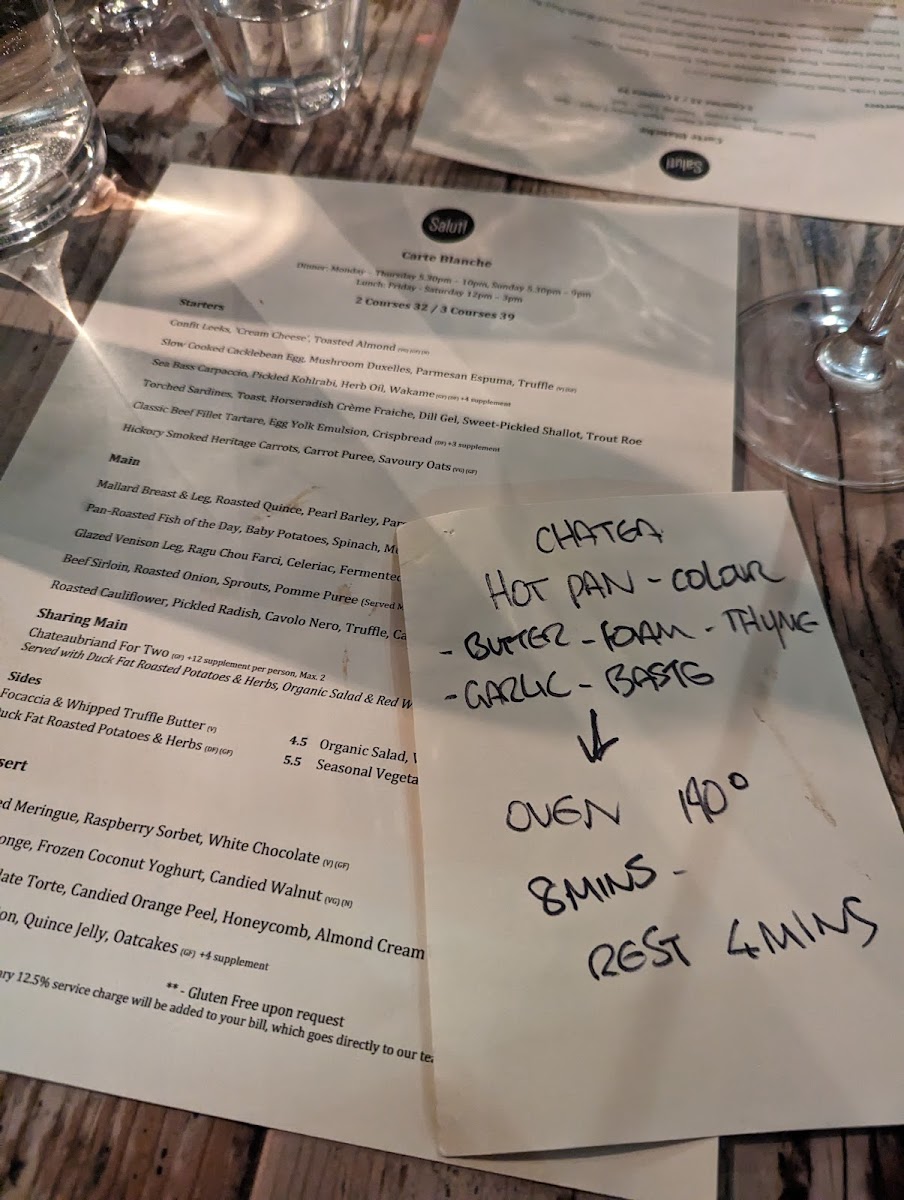 Salut!
Carte Blanche
Dinner: Monday - Thursday 5.30pm - 10pm, Sunday 5.30pm - 9pm
Lunch: Friday - Saturday 12pm - 3pm
2 Courses 32 / 3 Courses 39
Starters
Confit Leeks, 'Cream Cheese', Toasted Almond
Slow Cooked Cacklebean Egg, Mushroom Duxelles, Parmesan Espuma, Truffle
Sea Bass Carpaccio, Pickled Kohlrabi, Herb Oil, Wakame (GF) (DF) +4 supplement
Torched Sardines, Toast, Horseradish Crème Fraiche, Dill Gel, Sweet-Pickled Shallot, Trout Roe
Classic Beef Fillet Tartare, Egg Yolk Emulsion, Crispbread (DF) +3 supplement
Hickory Smoked Heritage Carrots, Carrot Puree, Savoury Oats (VG) (GF)
Main
Mallard Breast & Leg, Roasted Quince, Pearl Barley, Par
Pan-Roasted Fish of the Day, Baby Potatoes, Spinach,
Glazed Venison Leg, Ragu Chou Farci, Celeriac, Fermented
Beef Sirloin, Roasted Onion, Sprouts, Pomme Puree (Served
Roasted Cauliflower, Pickled Radish, Cavolo Nero, Truffle, Ca
Sharing Main
Chateaubriand For Two (GF) +12 supplement per person, Max. 2
Served with Duck Fat Roasted Potatoes & Herbs, Organic Salad & Red W
Sides
Focaccia & Whipped Truffle Butter (V)
uck Fat Roasted Potatoes & Herbs (DF) (GF)
4.5 Organic Salad,
5.5 Seasonal Vegeta
sert
ed Meringue, Raspberry Sorbet, White Chocolate (V) (GF)
onge, Frozen Coconut Yoghurt, Candied Walnut (VG) (N)
late Torte, Candied Orange Peel, Honeycomb, Almond Cream
on, Quince Jelly, Oatcakes (GF) +4 supplement
** - Gluten Free upon request
ary 12.5% service charge will be added to your bill, which goes directly to our tea
CHATEA
HOT PAN - COLOUR
- BUTTER - FOAM - THYME
- GARLIC - BASTE
↓
OVEN 140°
8 MINS -
REST 4 MINS
Salut!
Carte Blanche